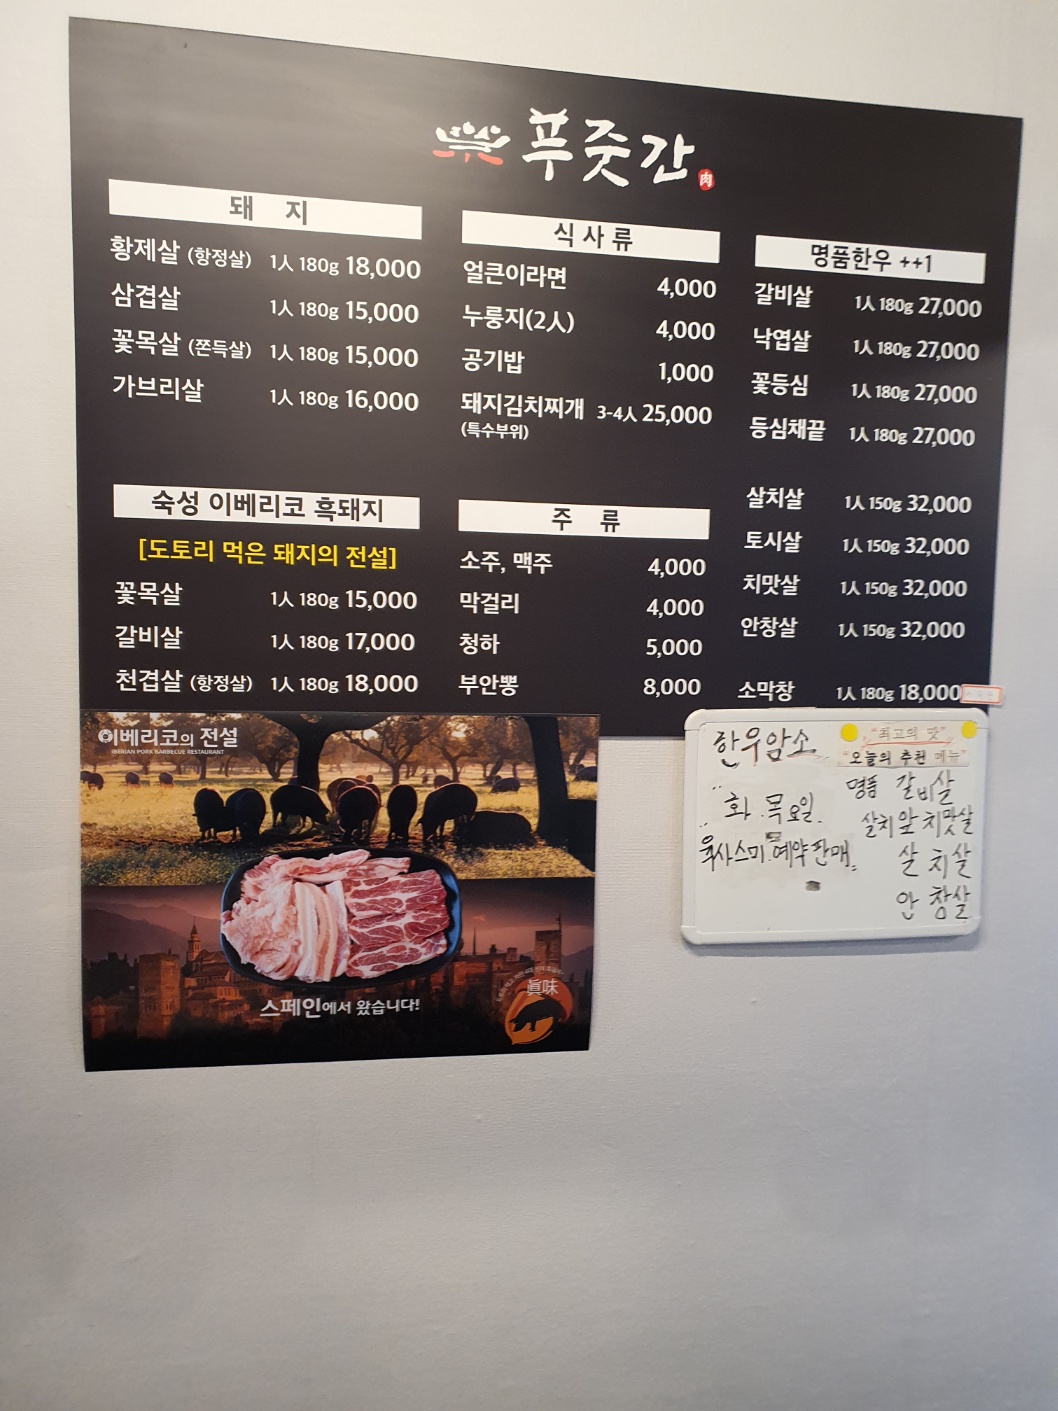 푸줏간
肉
돼 지
황제살 (항정살) 1人 180g 18,000
삼겹살 1人 180g 15,000
꽃목살 (쫀득살) 1人 180g 15,000
가브리살 1人 180g 16,000
숙성 이베리코 흑돼지
[도토리 먹은 돼지의 전설]
꽃목살 1人 180g 15,000
갈비살 1人 180g 17,000
천겹살 (항정살) 1人 180g 18,000
식 사 류
얼큰이라면 4,000
누룽지(2人) 4,000
공기밥 1,000
돼지김치찌개 3-4人 25,000
(특수부위)
주 류
소주, 맥주 4,000
막걸리 4,000
청하 5,000
부안뽕 8,000
명품한우 ++1
갈비살 1人 180g 27,000
낙엽살 1人 180g 27,000
꽃등심 1人 180g 27,000
등심채끝 1人 180g 27,000
살치살 1人 150g 32,000
토시살 1人 150g 32,000
치맛살 1人 150g 32,000
안창살 1人 150g 32,000
소막창 1人 180g 18,000
이베리코의 전설
IBERIAN PORK BARBECUE RESTAURANT
스페인에서 왔습니다!
眞味
한우암소
화.목요일.
육사스미.예약판매.
"최고의 맛"
"오늘의 추천 메뉴"
명품 갈비살
살치앞치맛살
살치살
안창살